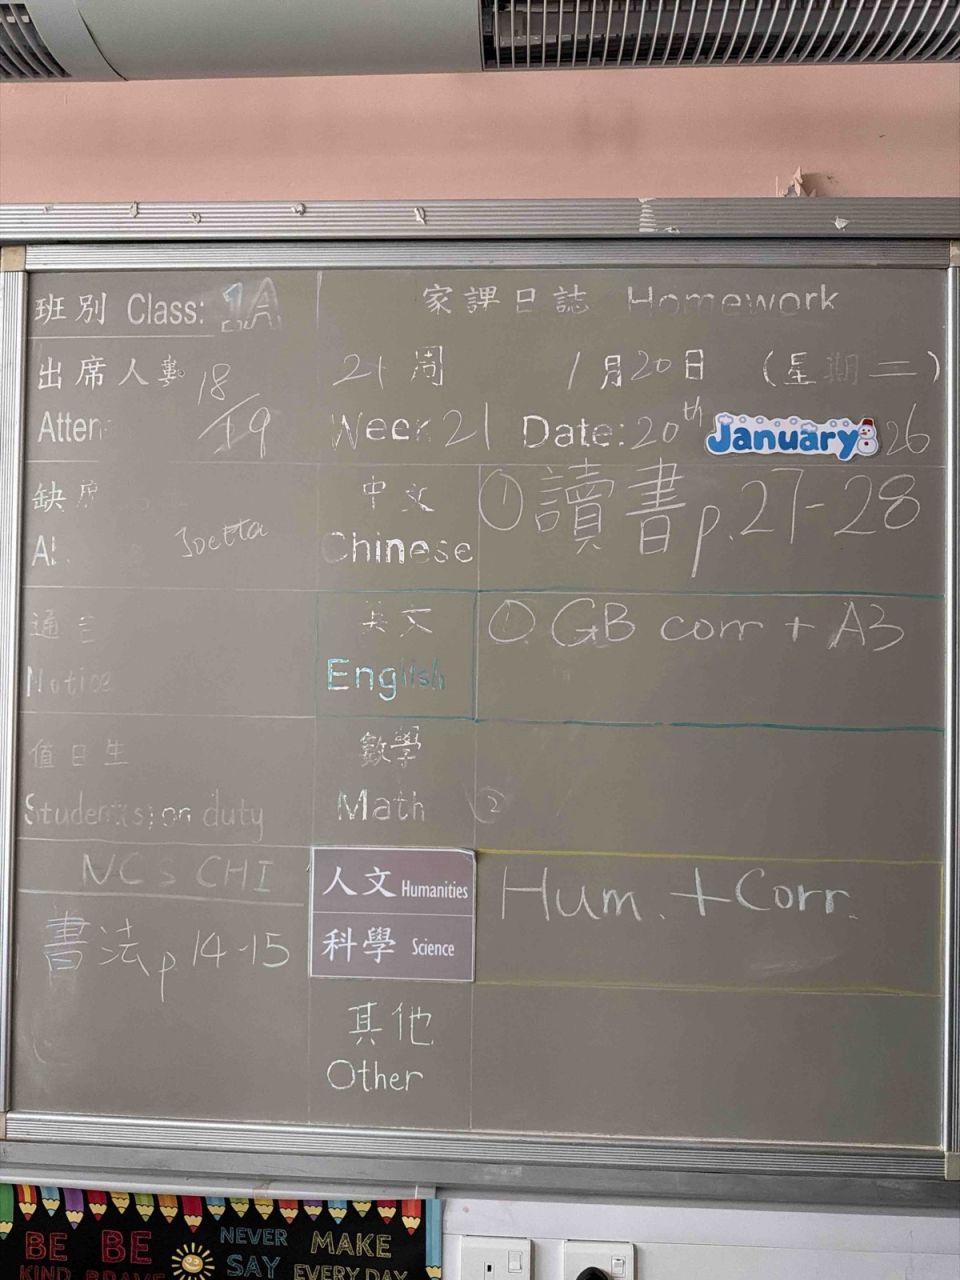 班別 Class: 1A
家課日誌 Homework
出席人數 18/19
Atten
21周 1月20日 (星期二)
Week 21 Date: 20th January 26
缺席
Joetta
中文 ① 讀書 p.27-28
Chinese
通告
Notice
英文 ① GB corr + A3
English
值日生
Student(s) on duty
數學
Math ②
NCS CHI
書法 p 14-15
人文 Humanities
科學 Science
Hum. + Corr.
其他
Other
BE KIND
BE BRAVE
NEVER SAY
MAKE EVERY DAY